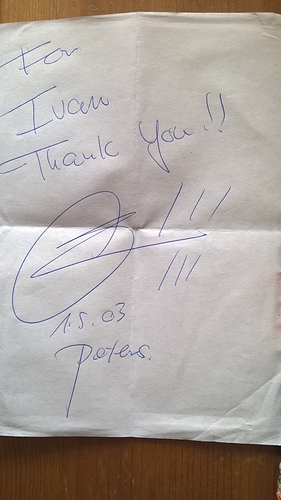 For
Ivan
Thank You!!
!!!
!!!
1.5.03